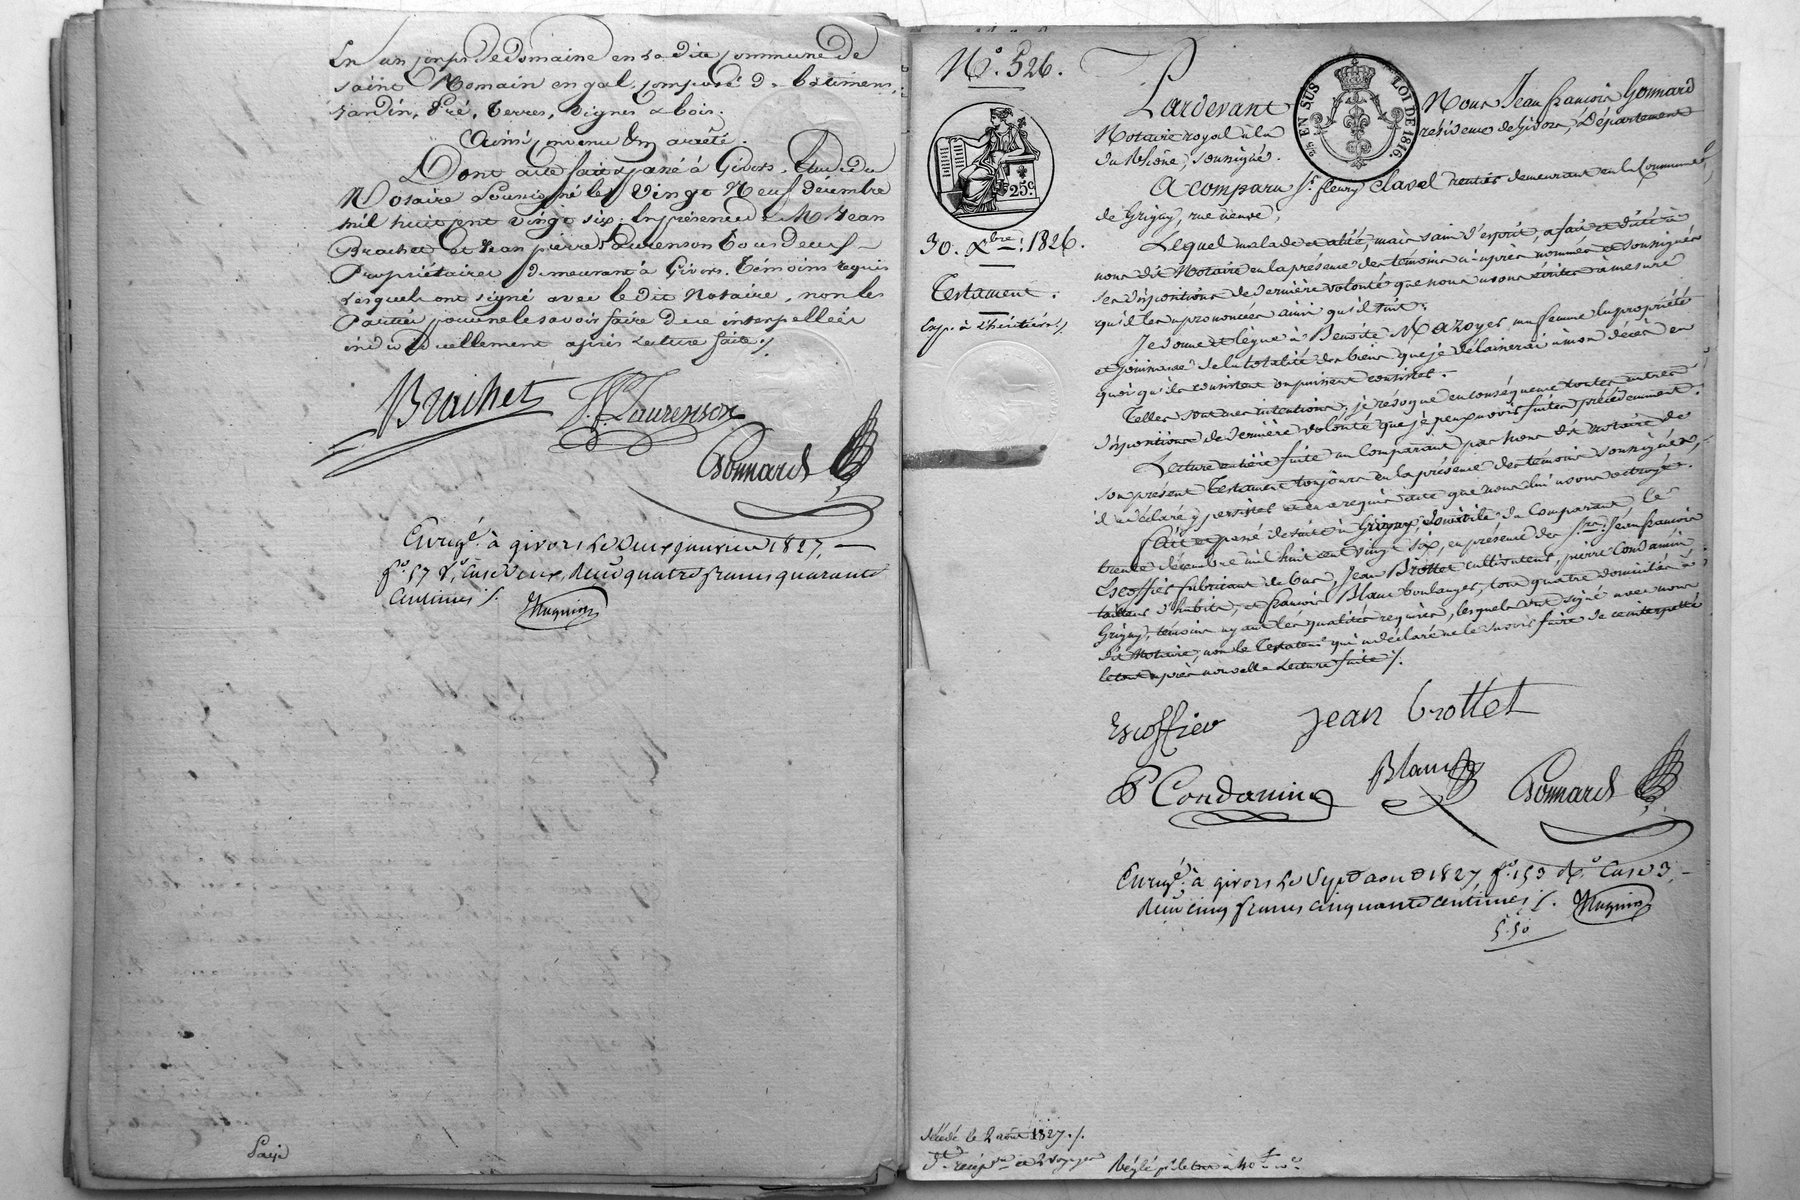 En un corps de domaine en la dite commune de
saint Romain en gal, composé de batimens,
jardin, Pré, Terres, Vignes & bois.
Ainsi convenu & arrêté.
Dont acte fait & passé à Givors, Etude du
Notaire soussigné le Vingt Neuf décembre
mil huit cent vingt six. En présence de M. Jean
Brachet et Jean pierre Laurenson tous deux
Propriétaires demeurant à Givors. Témoins requis
Lesquels ont signé avec le dit Notaire, non les
Parties pour ne le savoir faire de ce interpellées
individuellement après Lecture faite ./.
Brachet J. P. Laurenson
Gonnard
Enregé. à givors Le deux janvier 1827,
fo. 57 Vo, Case deux, Reçu quatre francs quarante
Centimes ./.
Payé
No. 526.
25c
30. Xbre. 1826.
Testament.
Exp. à L'héritière ./.
25 EN SUS LOI DE 1816
Pardevant Nous Jean françois Gonnard
Notaire royal à la résidence de Givors, Département
du Rhône, soussigné.
A comparu Sr. fleury Clavel rentier demeurant en la Commune
de Grigny, rue neuve,
Lequel malade et alité, mais sain d'esprit, a fait et dicté à
nous dit Notaire en la présence des témoins ci-après nommés et soussignés
ses dispositions de dernière volonté que nous avons écrites à mesure
qu'il les a prononcées ainsi qu'il suit.
Je donne et lègue à Benoite Mazoyer ma femme la propriété
et jouissance de la totalité des biens que je délaisserai à mon décès en
quoi qu'ils consistent ou puissent consister.
Telles sont mes intentions, je révoque en conséquence toutes autres
dispositions de dernière volonté que je peux avoir faites précédemment.
Lecture entière faite au Comparant par Nous dit notaire de
son présent Testament toujours en la présence des témoins soussignés,
il a déclaré y persister et en a requis acte que nous lui avons octroyé.
Fait et passé de suite à Grigny, domicile du Comparant, le
trente décembre mil huit cent vingt six, en présence des Srs. Jean françois
Escoffier fabricant de bas, Jean Brottet cultivateur, pierre Condamin
tailleur d'habits, et françois Blanc boulanger, tous quatre domiciliés à
Grigny, témoins ayant les qualités requises, lesquels ont signé avec nous
dit Notaire, non le Testateur qui a déclaré ne le savoir faire de ce interpellé
le tout après nouvelle Lecture faite ./.
Escoffier Jean Brottet
P Condamin Blanc Gonnard
Enregé. à givors Le Sept aout 1827, fo. 153 Ro. Case 3,
Reçu cinq francs cinquante centimes ./.
5.50
Décédé le 2 août 1827 ./.